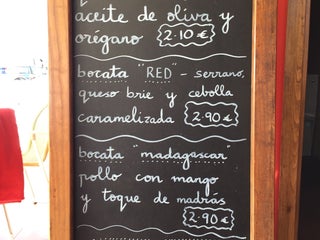 aceite de oliva y
orégano 2.10€
bocata "RED" - serrano,
queso brie y cebolla
caramelizada 2.90€
bocata "madagascar"
pollo con mango
y toque de madrás
2.90€